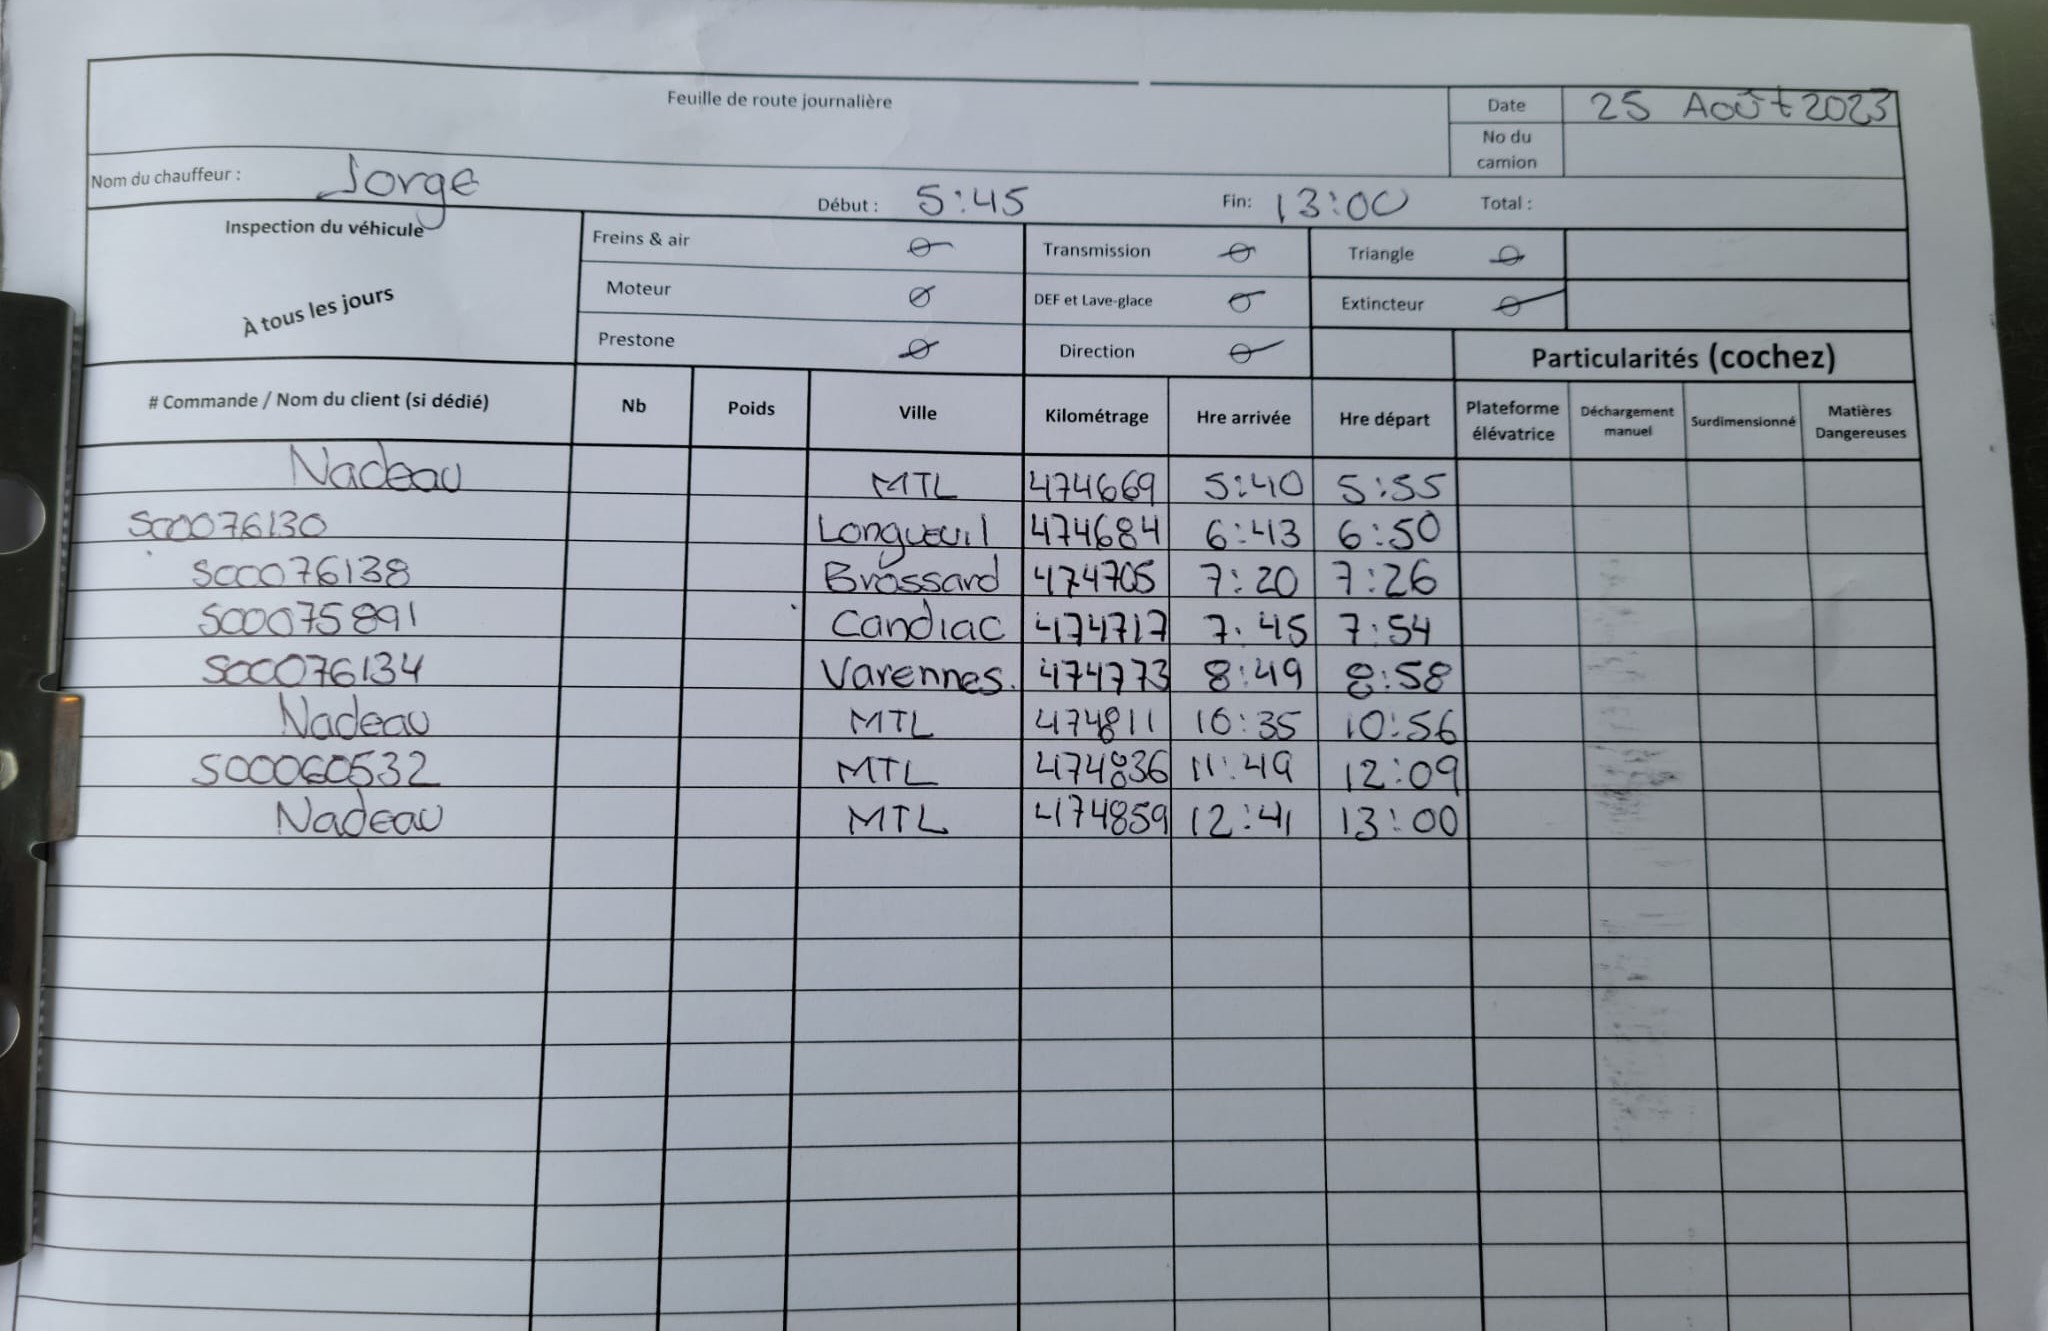 Feuille de route journalière
Date 25 Août 2023
No du camion
Nom du chauffeur : Jorge Début : 5:45 Fin: 13:00 Total :
Inspection du véhicule
À tous les jours
Freins & air Transmission Triangle
Moteur DEF et Lave-glace Extincteur
Prestone Direction
Particularités (cochez)
# Commande / Nom du client (si dédié) Nb Poids Ville Kilométrage Hre arrivée Hre départ Plateforme élévatrice Déchargement manuel Surdimensionné Matières Dangereuses
Nadeau MTL 474669 5:40 5:55
SO0076130 Longueuil 474684 6:43 6:50
SO0076138 Brossard 474705 7:20 7:26
SO0075891 Candiac 474717 7:45 7:54
SO0076134 Varennes. 474773 8:49 8:58
Nadeau MTL 474811 10:35 10:56
SO0060532 MTL 474836 11:49 12:09
Nadeau MTL 474859 12:41 13:00